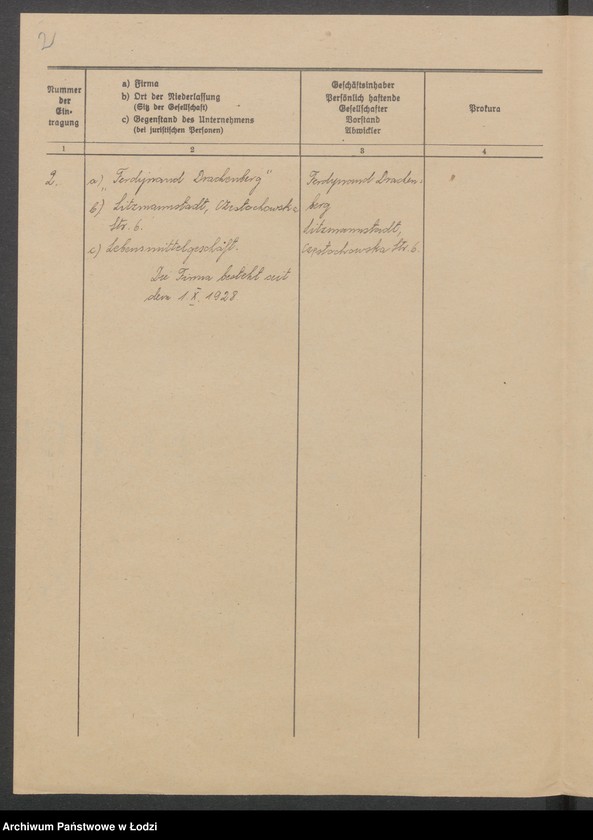 2
Nummer
der
Ein-
tragung
a) Firma
b) Ort der Niederlassung
(Sitz der Gesellschaft)
c) Gegenstand des Unternehmens
(bei juristischen Personen)
Geschäftsinhaber
Persönlich haftende
Gesellschafter
Vorstand
Abwickler
Prokura
1
2
3
4
2.
a) „Ferdynand Drachenberg"
b) Litzmannstadt, Częstochowska
Str. 6.
c) Lebensmittelgeschäft.
Die Firma besteht seit
dem 1 X. 1928
Ferdynand Drachen-
berg
Litzmannstadt,
Częstochowska Str. 6.
"
Archiwum Państwowe w Łodzi